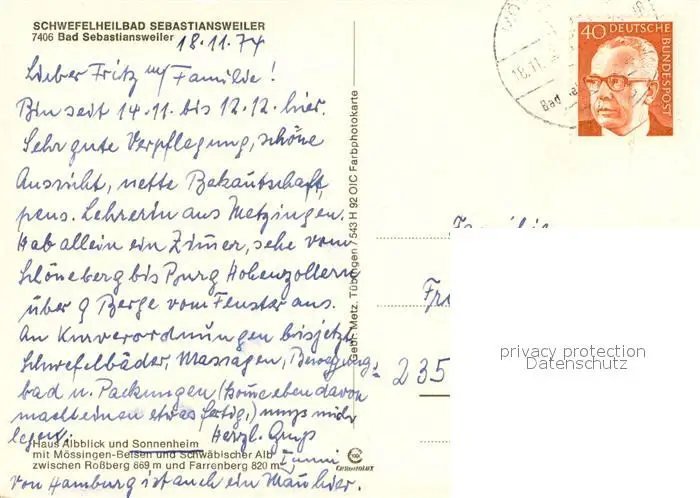 SCHWEFELHEILBAD SEBASTIANSWEILER
7406 Bad Sebastiansweiler
18.11.74
Lieber Fritz u/ Familie!
Bin seit 14.11. bis 12.12. hier.
Sehr gute Verpflegung, schöne
Aussicht, nette Bekantschaft,
pens. Lehrerin aus Metzingen.
Hab allein ein Zimer, sehe vom
Schöneberg bis Burg Hohenzollern
über 9 Berge vom Fenster aus.
An Kurverordnungen bis jetzt
Schwefelbäder, Massagen, Bewegungs-
bad u. Packungen (kome eben davon
macht einen etwas fertig,) muss mich
legen.
Herzl. Gruß
Haus Albblick und Sonnenheim
mit Mössingen-Belsen und Schwäbischer Alb
zwischen Roßberg 869 m und Farrenberg 820 m
von Hamburg ist auch ein Mau hier.
Gebr. Metz, Tübingen 7 543 H 92 OIC Farbphotokarte
CHROMOLUX
18.11.
Bad
40 DEUTSCHE
BUNDESPOST
Familie
Fr
235
privacy protection
Datenschutz